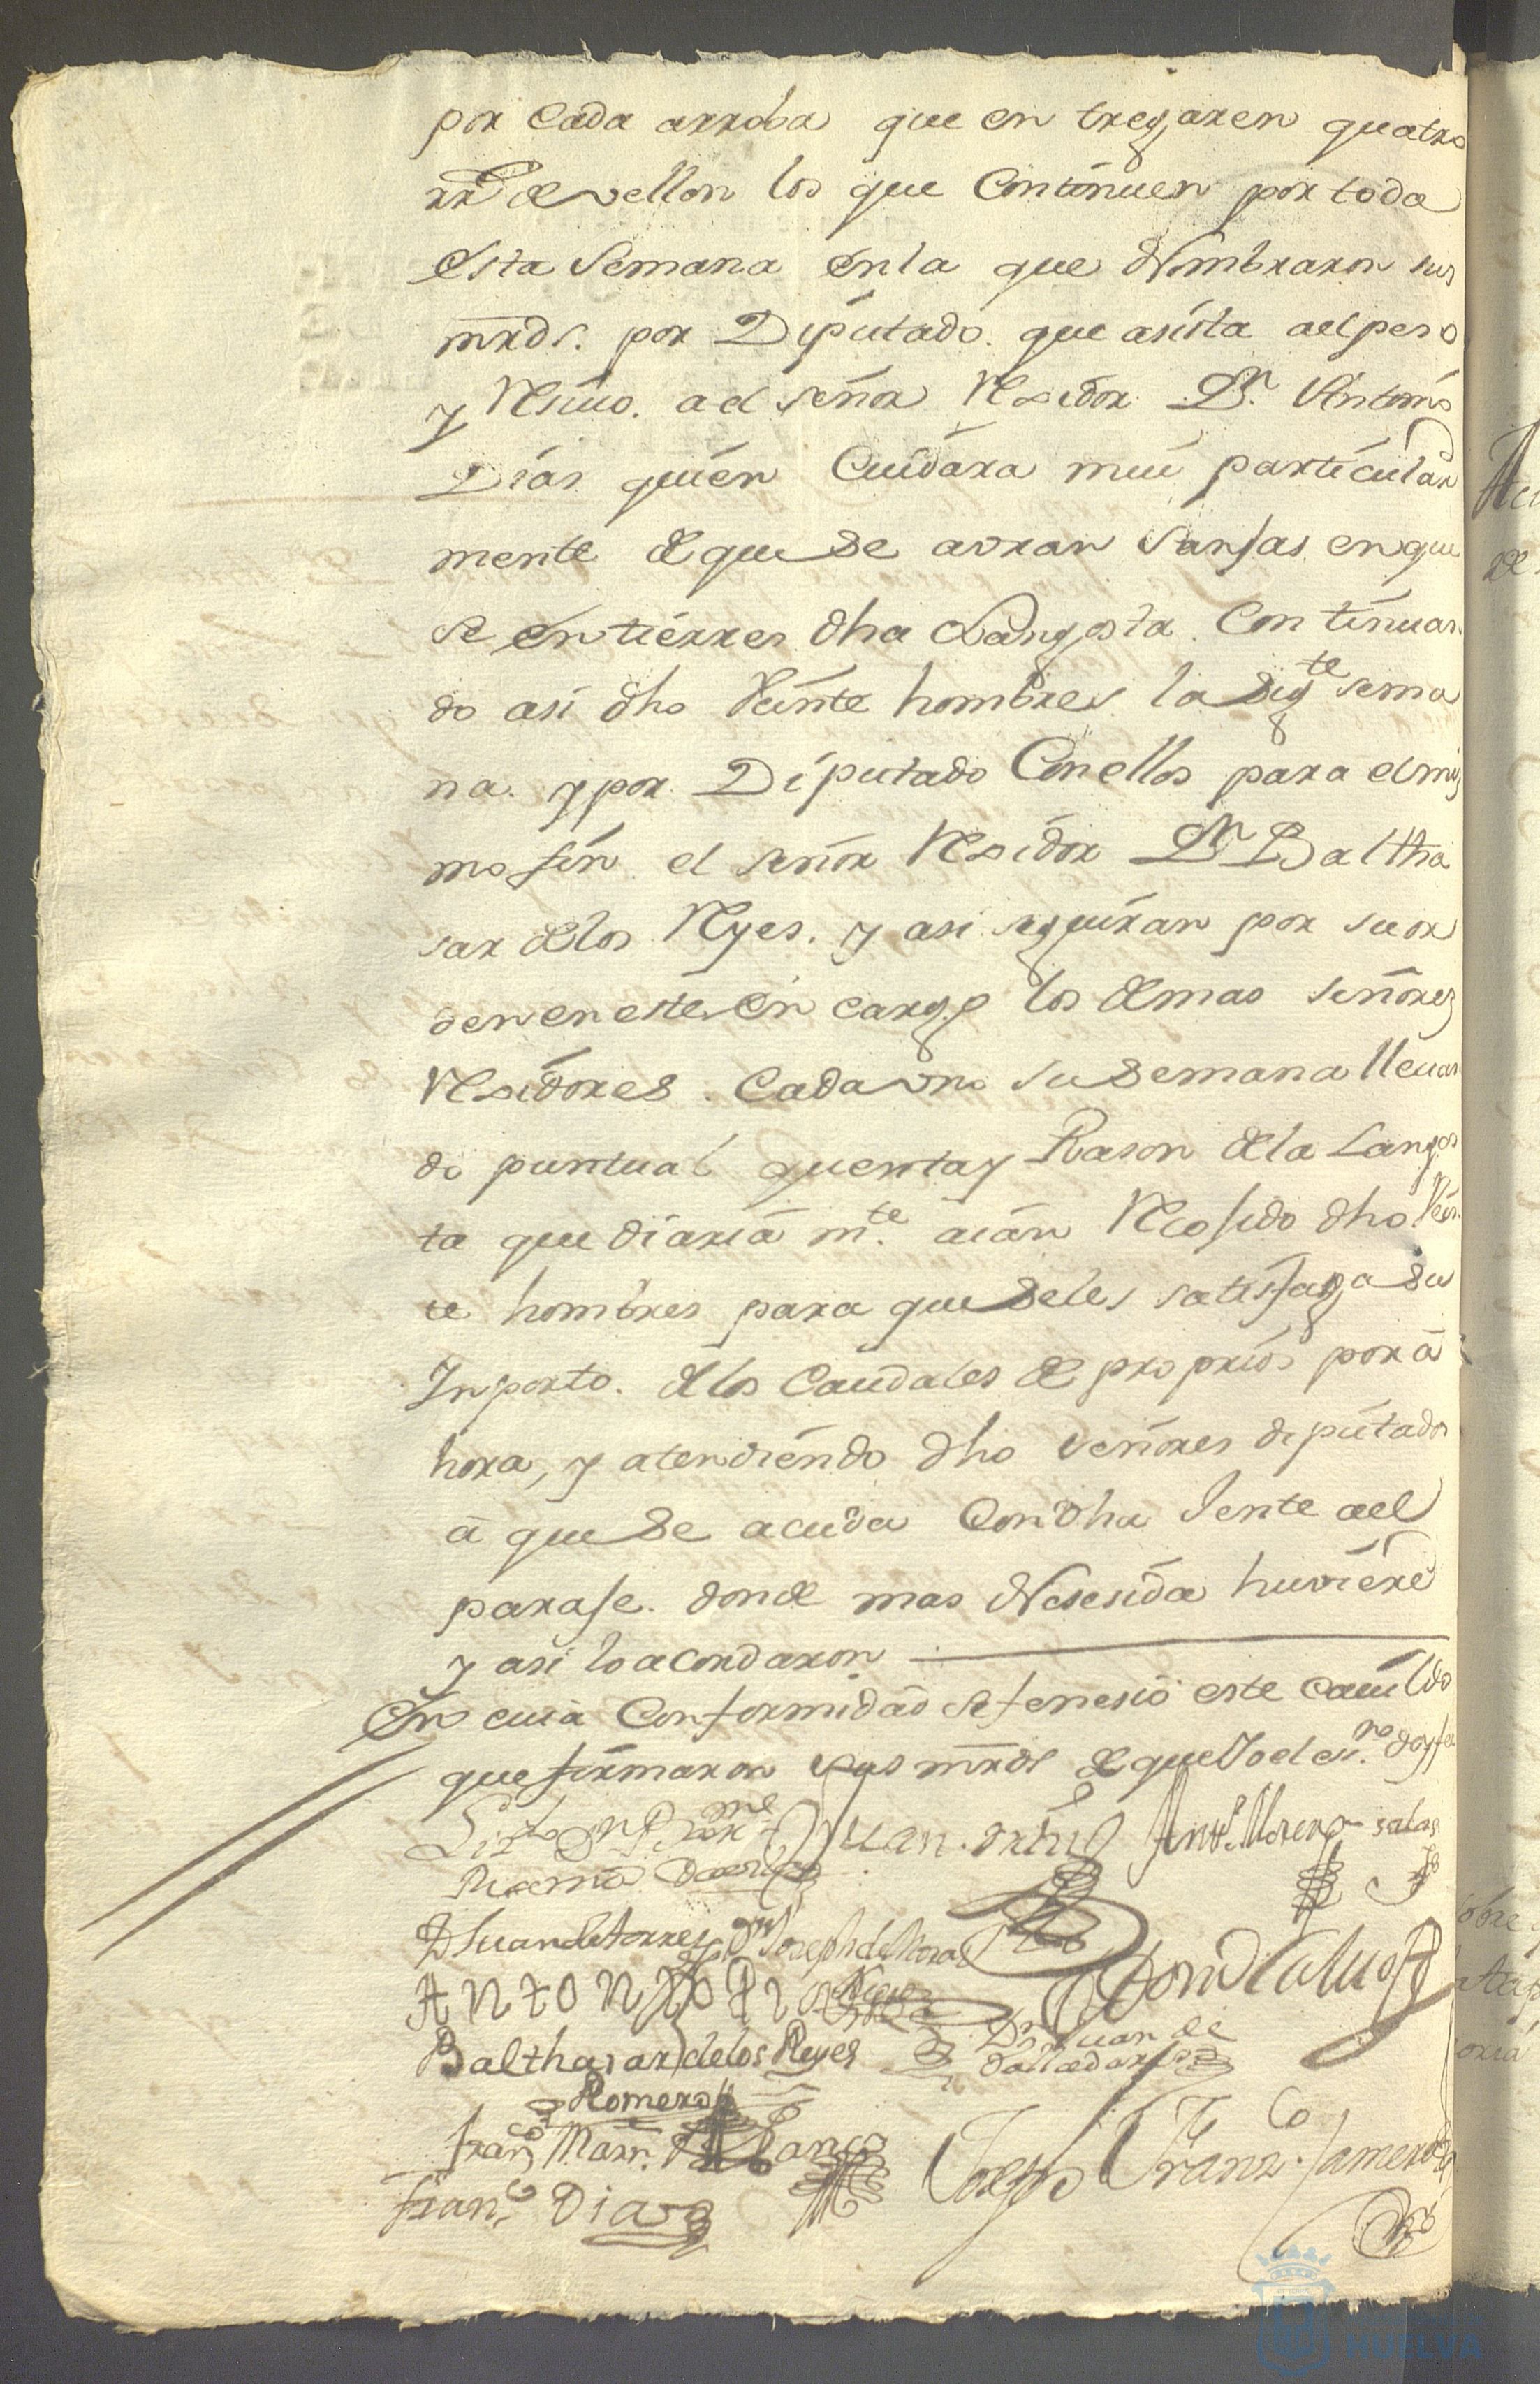 por Cada arroba que en tregaren quatro
rr.s de vellon los que Continuen por toda
esta Semana en la que Nombraron sus
mrds. por Diputado. que asista ael peso
y Resiuo. ael señor Rexidor Dn. Antonio
Dias quien Cuidara mui particular
mente de que se avran Sanjas en que
se entierres dha Langosta. Continuan
do asi dho Veinte hombres la sigte sema
na. y por Diputado Con ellos para el mis
mo fin el señor Rexidor Dn Baltha
sar de los Reyes. y asi seguiran por su or
den en este en cargo los demas señores
Rexidores. Cada vno su semana lleuan
do puntual quenta y Rason de la Langos
ta que diaria mte. aian Recojido dho Vein
te hombres para que se les satisfaga su
Inporto. de los Caudales de proprios por ā
hora, y atendiendo dho señores diputados
ā que se acuda Con dha Jente ael
paraje. donde mas Nesesida huviere
y asi lo acordaron
En cuia Conformidad se fenesio este Cauildo
que firmaron sus mrds de que Yo el essno. doy fee
Juan Ortis Antto. Moreno salas
D Juan de torres Dn Joseph de Mora
ANtONIO PIO
Balthasar de los Reyes Dn Juan de
Romero
Franco Marn. Blanco Joseph Franco.
Franco Dias
HUELVA